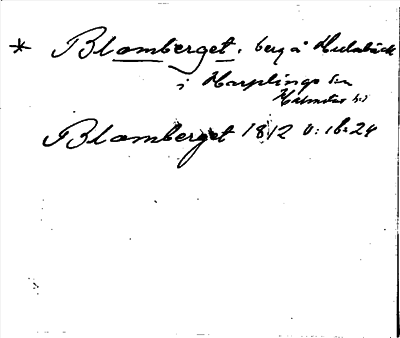 * Blomberget, berg å Hulabäck
i Harplinge sn
Halmstad hd
Blomberget 1812 O: 16: 24